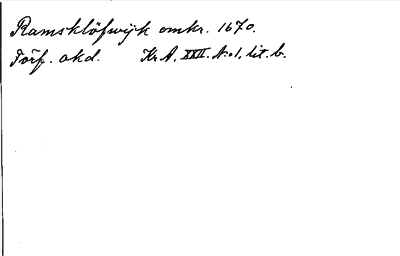 Ramsklöfwijk omkr. 1670.
Förf. okd. Kr. A. XXII. N:o 1. lit. b.